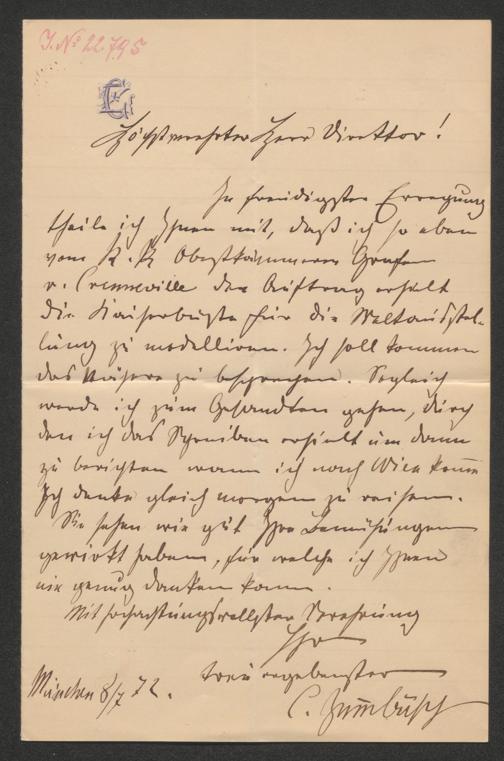 J. № 22.795
Höchstverehrter Herr Direktor!
In freudigster Erregung
theile ich Ihnen mit, daß ich so eben
vom K. K. Oberstkämmerer Grafen
v. Crenneville den Auftrag erhielt
die Kaiserbüste für die Weltausstel-
lung zu modelliren. Ich soll kommen
das Nähere zu besprechen. Sogleich
werde ich zum Gesandten gehen, durch
den ich das Schreiben erhielt um dann
zu berichten wann ich nach Wien komme
Ich denke gleich morgen zu reisen.
Sie sehen wie gut Ihre Bemühungen
gewirkt haben, für welche ich Ihnen
nie genug danken kann.
Mit hochachtungsvollster Verehrung
Ihr
treu ergebenster
C. Zumbusch
München 8/7 72.